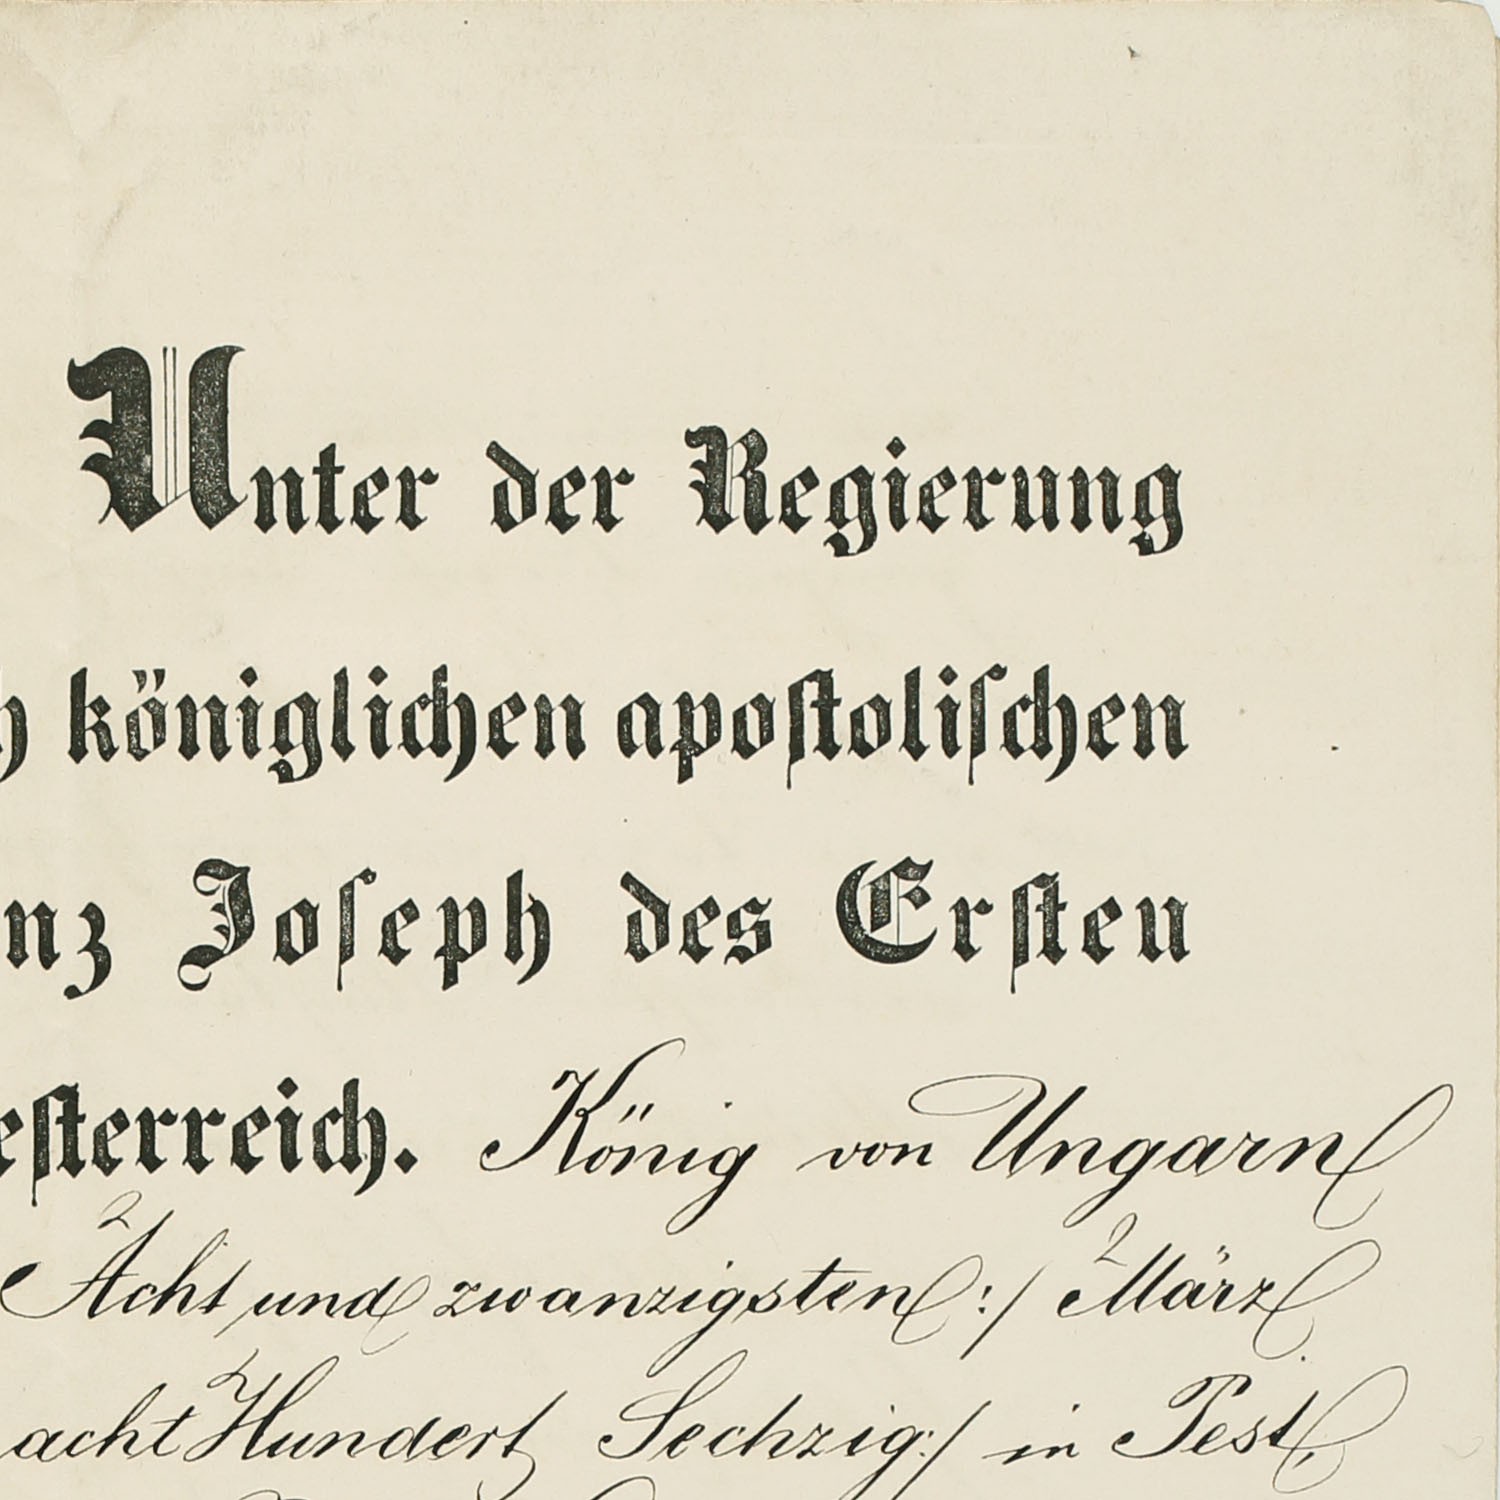 Unter der Regierung
königlichen apostolischen
nz Joseph des Ersten
esterreich. König von Ungarn
Acht und zwanzigsten :/ März
acht Hundert Sechzig :/ in Pest,